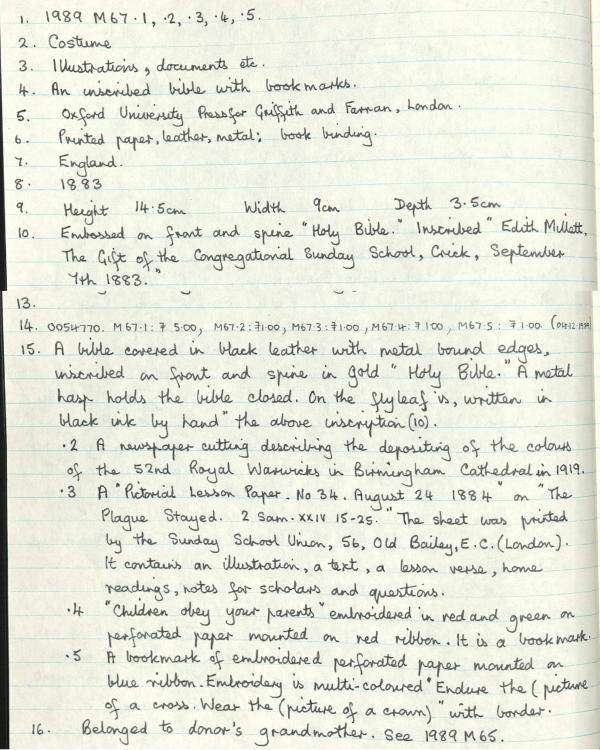 1. 1989 M67.1, .2, .3, .4, .5.
2. Costume
3. Illustrations, documents etc.
4. An inscribed bible with bookmarks.
5. Oxford University Press for Griffith and Farran, London.
6. Printed paper, leather, metal; book binding.
7. England.
8. 1883
9. Height 14.5cm Width 9cm Depth 3.5cm
10. Embossed on front and spine "Holy Bible." Inscribed "Edith Millett,
The Gift of the Congregational Sunday School, Crick, September
7th 1883."
13.
14. 0054770. M67.1: £5.00, M67.2: £1.00, M67.3: £1.00, M67.4: £1.00, M67.5: £1.00 (04.12.1989)
15. A bible covered in black leather with metal bound edges,
inscribed on front and spine in gold "Holy Bible." A metal
hasp holds the bible closed. On the flyleaf is, written in
black ink by hand" the above inscription (10).
.2 A newspaper cutting describing the depositing of the colours
of the 52nd Royal Warwicks in Birmingham Cathedral in 1919.
.3 A "Pictorial Lesson Paper. No 34. August 24 1884" on "The
Plague Stayed. 2 Sam. XXIV 15-25. "The sheet was printed
by the Sunday School Union, 56, Old Bailey, E.C. (London).
It contains an illustration, a text, a lesson verse, home
readings, notes for scholars and questions.
.4 "Children obey your parents" embroidered in red and green on
perforated paper mounted on red ribbon. It is a bookmark.
.5 A bookmark of embroidered perforated paper mounted on
blue ribbon. Embroidery is multi-coloured "Endure the (picture
of a cross. Wear the (picture of a crown)" with border.
16. Belonged to donor's grandmother. See 1989 M65.